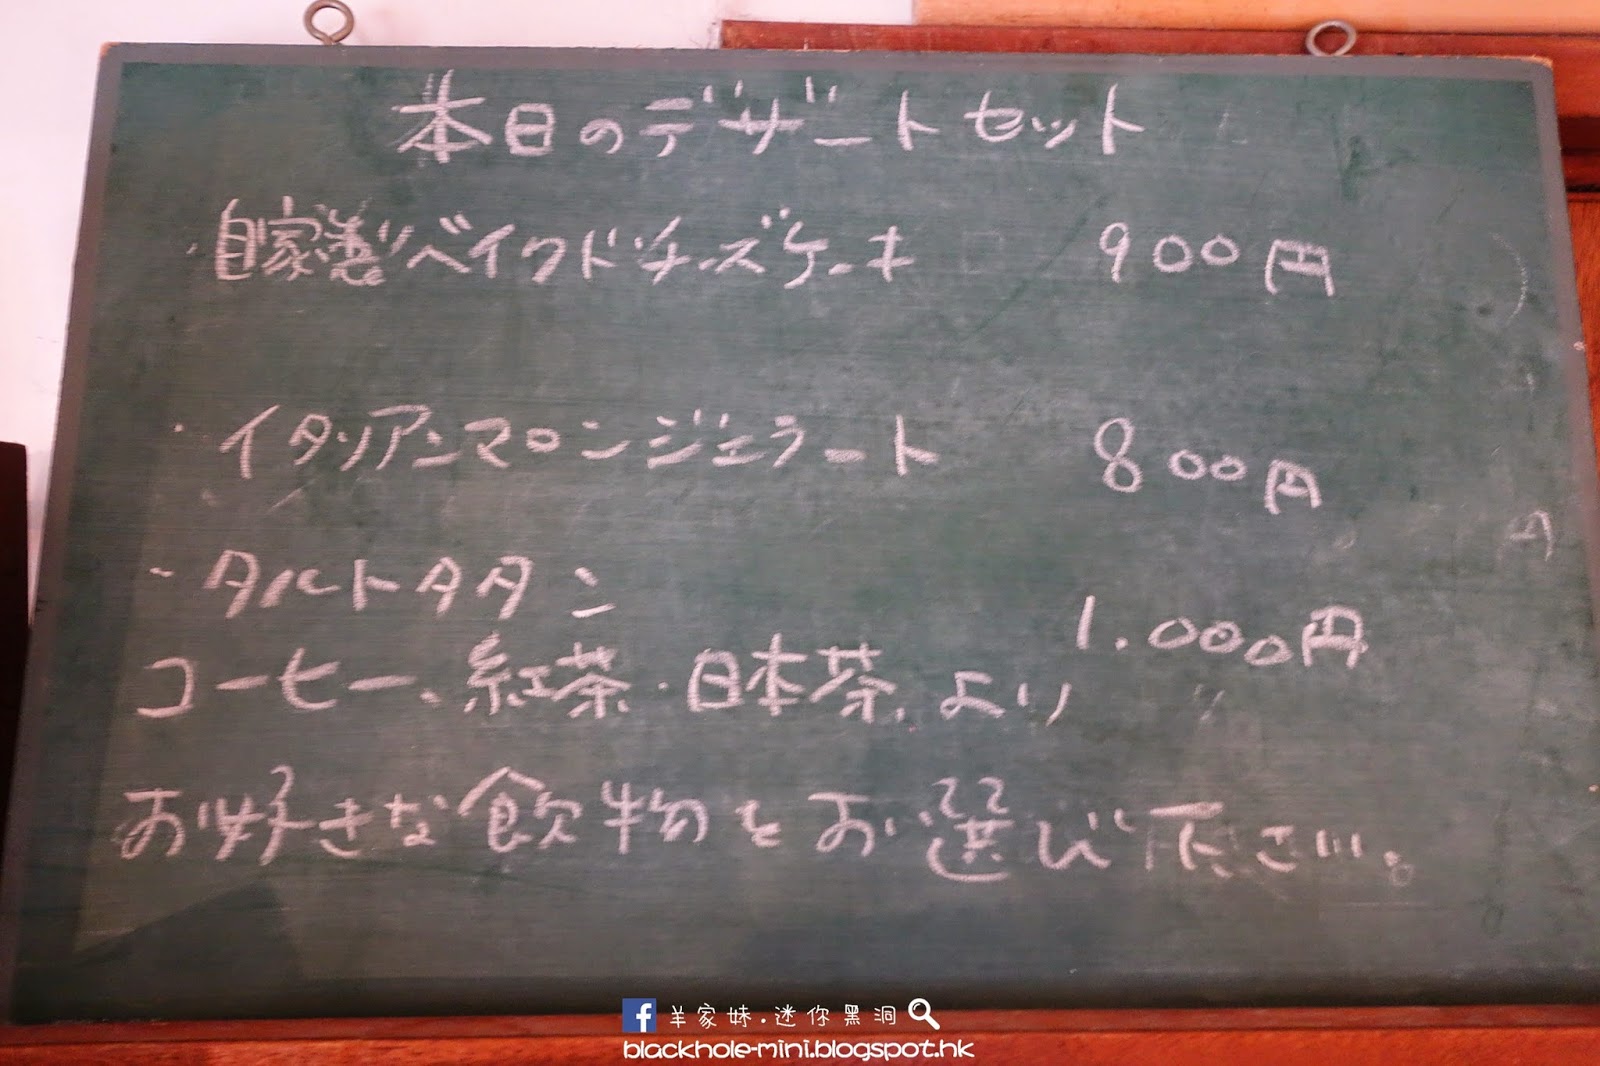 本日のデザートセット
・自家製ベイクドチーズケーキ 900円
・イタリアンマロンジェラート 800円
・タルトタタン 1.000円
コーヒー、紅茶・日本茶、より
お好きな飲物をお選び下さい。
羊家妹.迷你黑洞
blackhole-mini.blogspot.hk